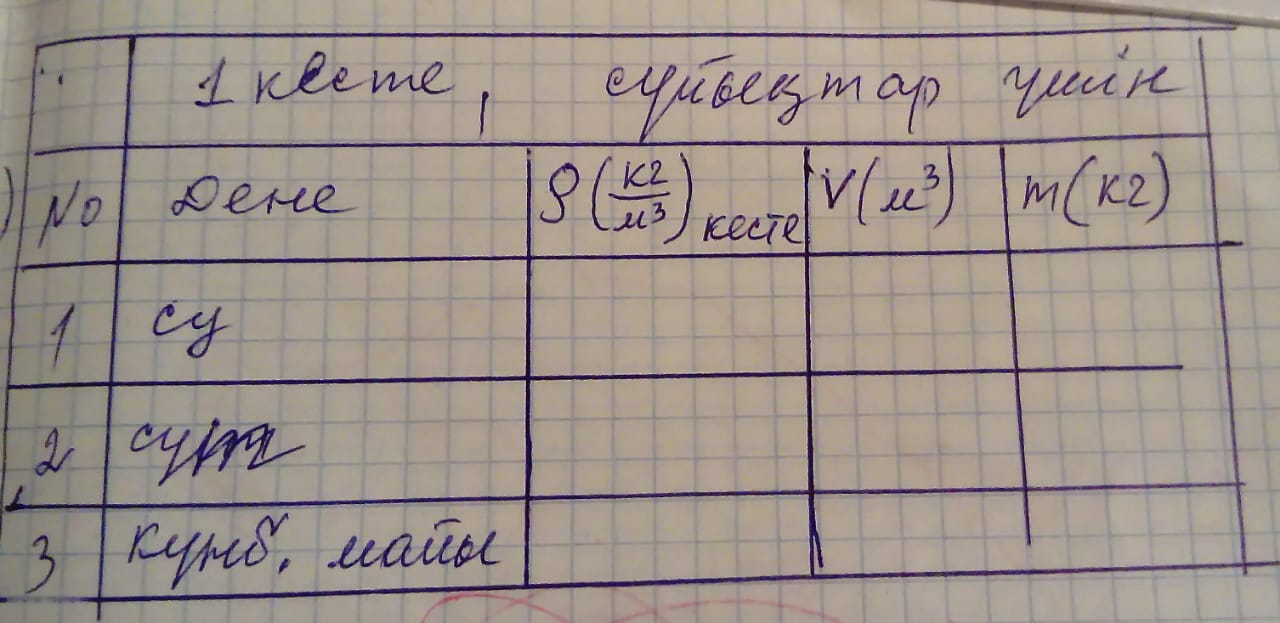 1 кесте, сұйықтар үшін
№ Дене ρ(кг/м³) кесте V(м³) m(кг)
1 су
2 сүт
3 күнб. майы